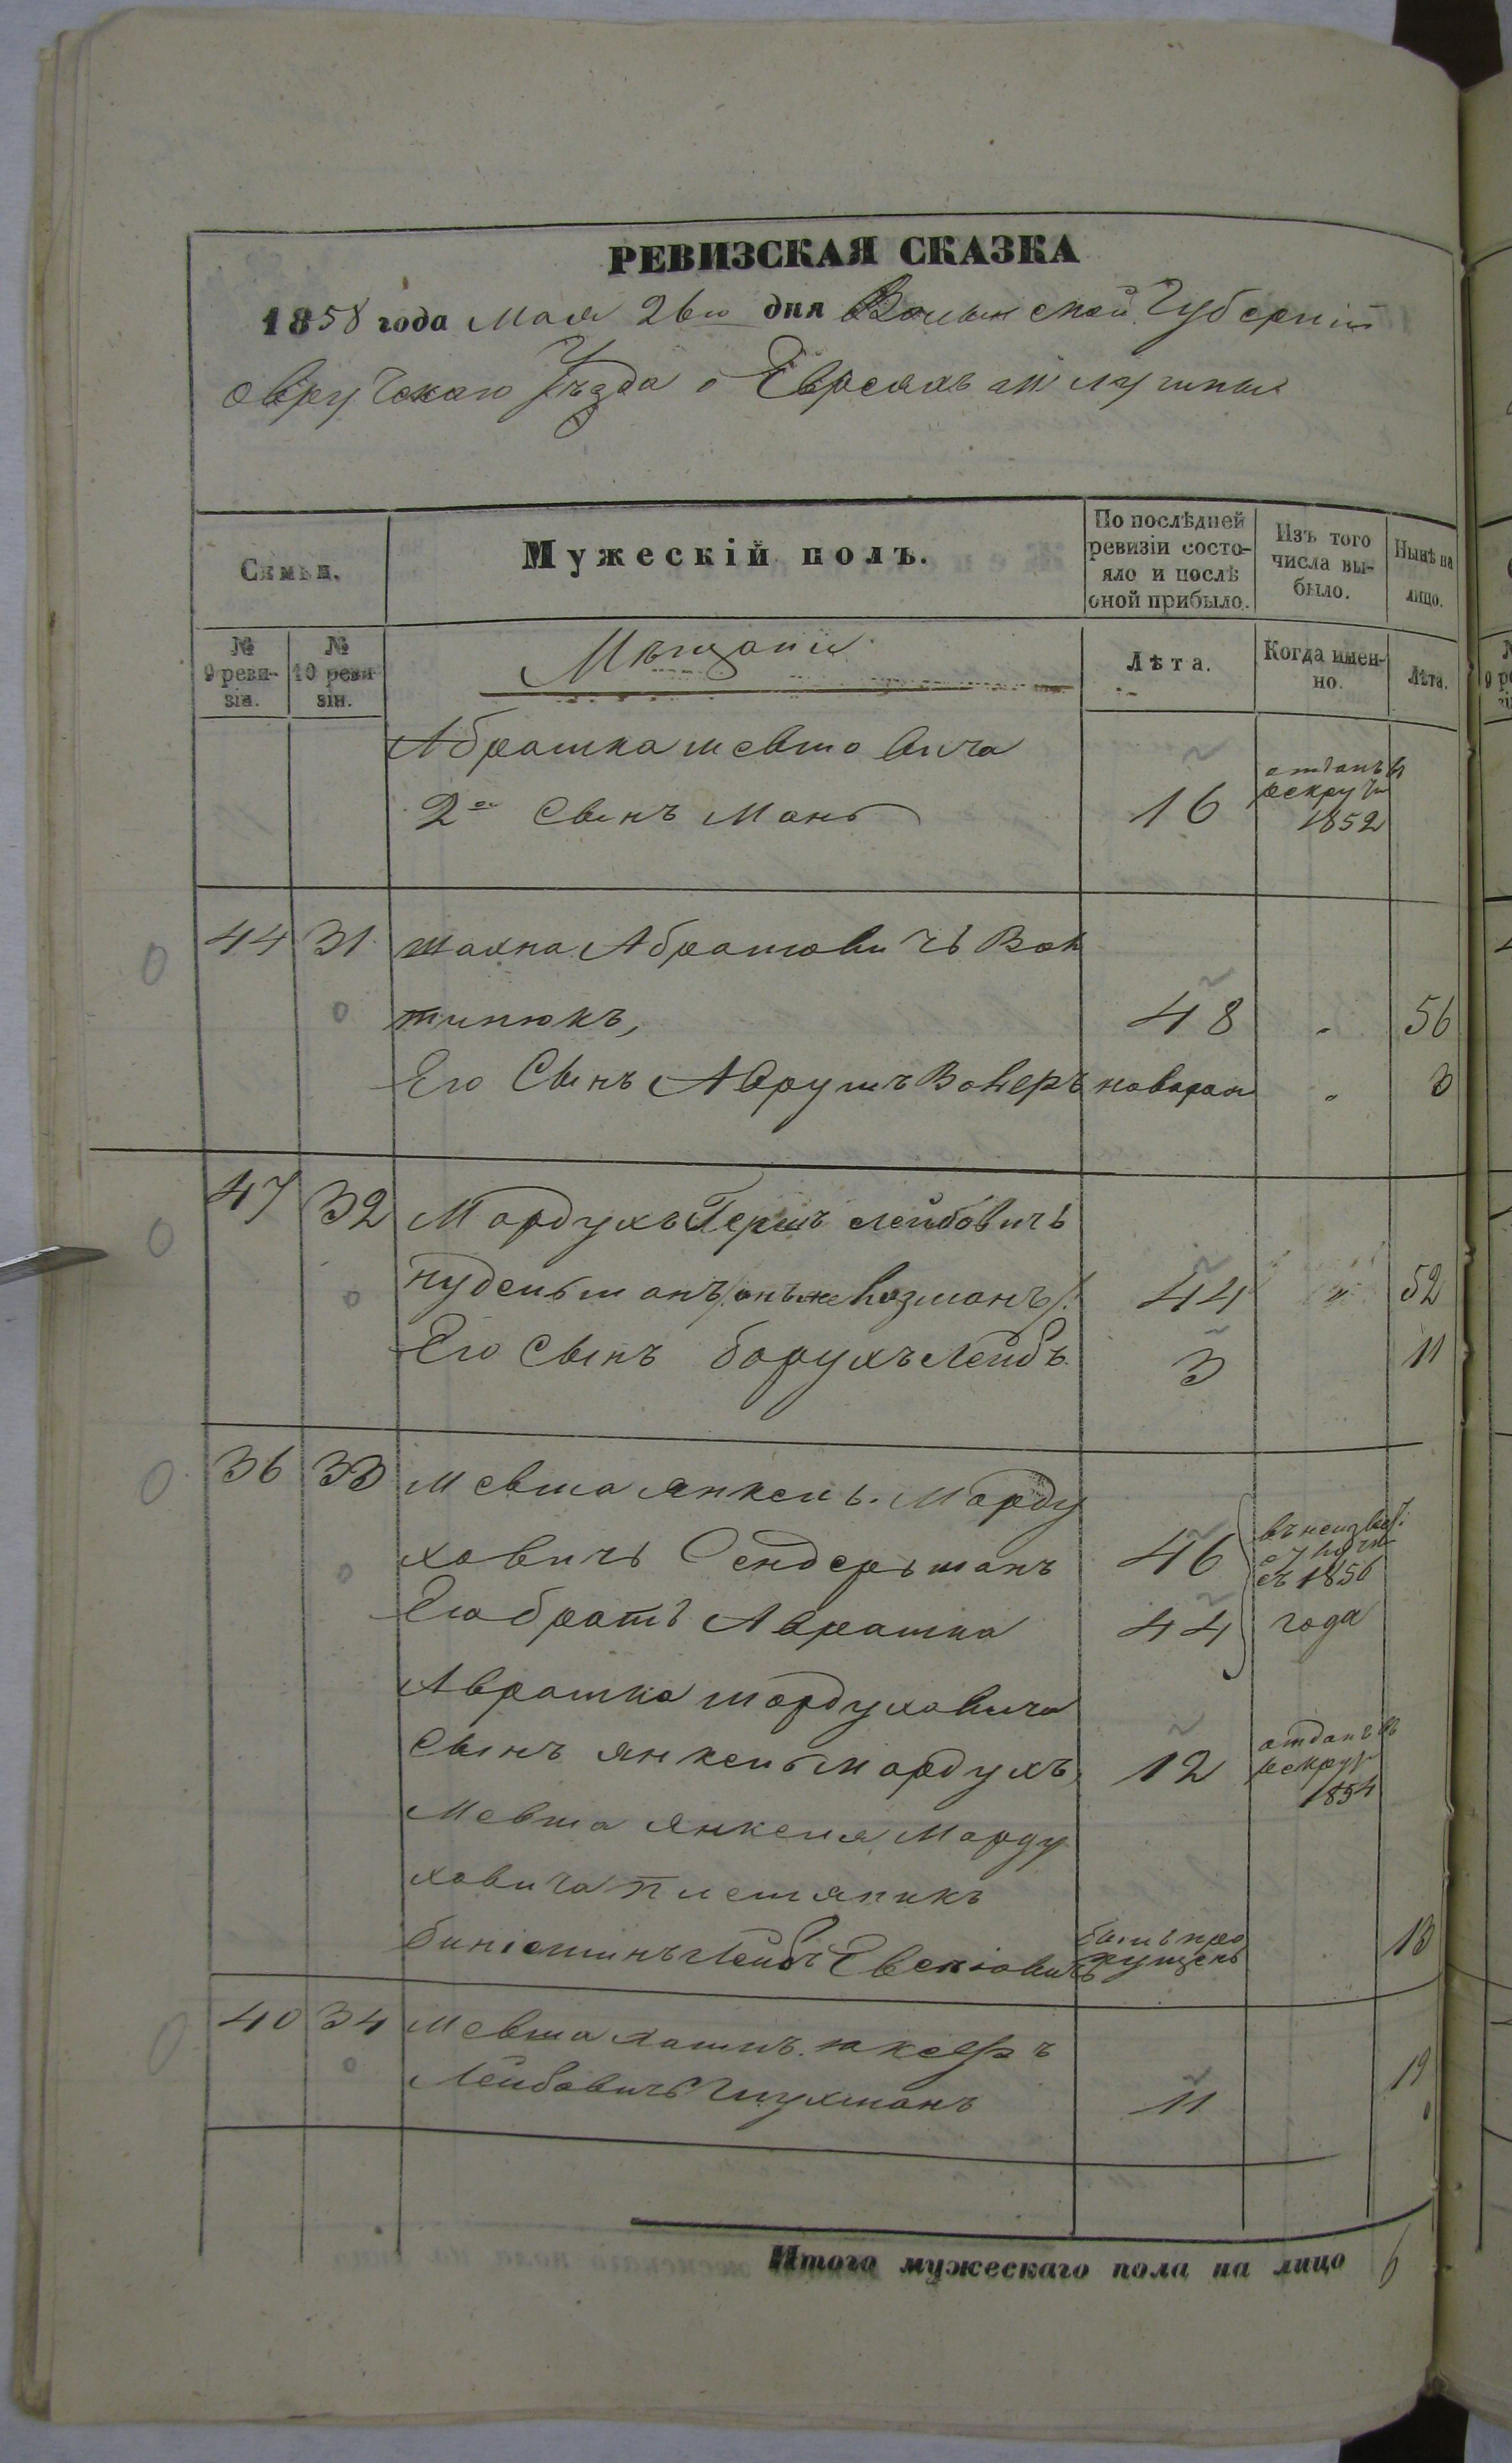 РЕВИЗСКАЯ СКАЗКА
1858 года Мая 26го дня Волынской Губерніи
Овручскаго Уѣзда о Евреяхъ
Семьи.
Мужескій полъ.
По послѣдней ревизіи состо-
яло и послѣ оной прибыло.
Изъ того числа вы-
было.
Нынѣ на лицо.
№ 9 реви-
зіи.
№ 10 реви-
зіи.
Мѣщане
Лѣта.
Когда имен-
но.
Лѣта.
Абрашка мевшовича
2й Сынъ Мань 16 отданъ въ рекруты 1852
44 31 шахна Абрамовичъ Вок
тинюкъ, 48 " 56
Его Сынъ Аврумъ Волеръ новорож " 3
47 32 Мордухъ Гершъ лейбовичъ
нудельманъ /онъ же Козманъ/. 44 " 52
Его Сынъ борухъ Лейбъ 3 11
36 33 Мевша янкель. Морду
ховичъ Сендерманъ 46 въ неизвѣс.
Его братъ Аврашка 44 съ 1856 года
Аврашка мордуховича
Сынъ янкель мордухъ, 12 отданъ въ рекрут 1854
Мевша янкеля Морду
ховича племяникъ
биніоминъ Лейбъ Евсеіовичъ былъ про
пущенъ 13
40 34 Мевша хаимъ.
Лейбовичъ Глухманъ 11 19
Итого мужескаго пола на лицо 6